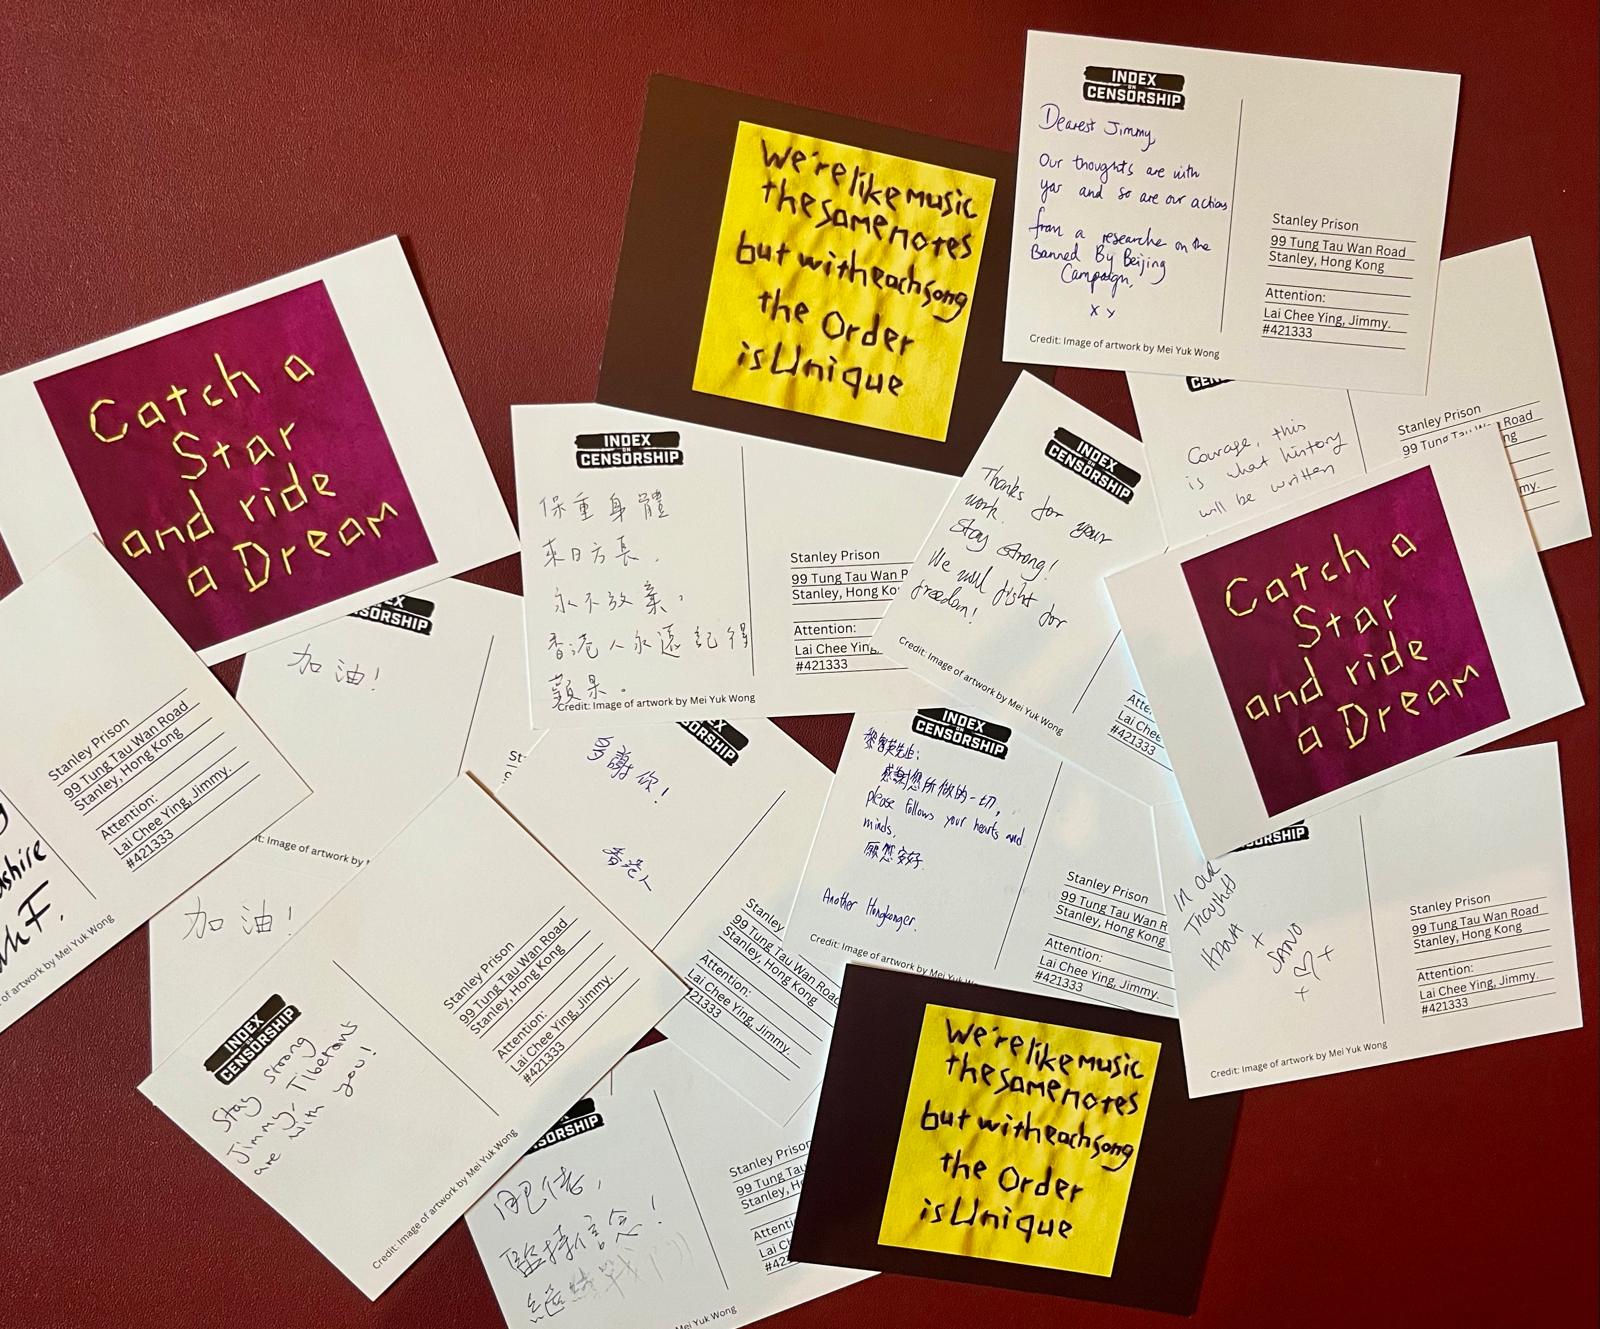 INDEX
ON
CENSORSHIP
Dearest Jimmy,
Our thoughts are with
you and so are our actions
from a researcher on the
Banned By Beijing
Campaign,
x x
Credit: Image of artwork by Mei Yuk Wong
Stanley Prison
99 Tung Tau Wan Road
Stanley, Hong Kong
Attention:
Lai Chee Ying, Jimmy.
#421333
We're like music
the same notes
but with each song
the Order
is Unique
Catch a
Star
and ride
a Dream
INDEX
ON
CENSORSHIP
保重身體
來日方長,
永不放棄,
香港人永遠記得
蘋果。
Credit: Image of artwork by Mei Yuk Wong
Stanley Prison
99 Tung Tau Wan R
Stanley, Hong Ko
Attention:
Lai Chee Ying,
#421333
INDEX
ON
CENSORSHIP
Thanks for your
work.
Stay strong!
We will fight for
freedom!
Credit: Image of artwork by Mei Yuk Wong
Atte
Lai Chee
#421333
CEN
Courage, this
is what history
will be written
Stanley Prison
99 Tung Road
ng
my.
Catch a
Star
and ride
a Dream
SORSHIP
加油!
Credit: Image of artwork by
Stanley Prison
99 Tung Tau Wan Road
Stanley, Hong Kong
Attention:
Lai Chee Ying, Jimmy.
#421333
shire
F.
of artwork by Mei Yuk Wong
加油!
多謝你!
香港人
Stanley
99 Tung Tau Wan Road
Stanley, Hong Kong
Attention:
Lai Chee Ying, Jimmy.
#421333
INDEX
ON
CENSORSHIP
黎智英先生:
感謝您所做的一切,
please follows your hearts and
minds,
願您安好
Another Hongkonger.
Credit: Image of artwork by Mei
Stanley Prison
99 Tung Tau Wan R
Stanley, Hong Kong
Attention:
Lai Chee Ying, Jimmy.
#421333
ORSHIP
In our
Thoughts
Stanley Prison
99 Tung Tau Wan Road
Stanley, Hong Kong
Attention:
Lai Chee Ying, Jimmy.
#421333
Credit: Image of artwork by Mei Yuk Wong
INDEX
ON
CENSORSHIP
Stay Strong
Jimmy - Tibetans
are with you!
Stanley Prison
99 Tung Tau Wan Road
Stanley, Hong Kong
Attention:
Lai Chee Ying, Jimmy.
#421333
Credit: Image of artwork by Mei Yuk Wong
SORSHIP
肥佬,
堅持信念!
Stanley Prison
99 Tung Tau
Stanley, H
Attenti
Lai C
#42
Mei Yuk Wong
We're like music
the same notes
but with each song
the Order
is Unique